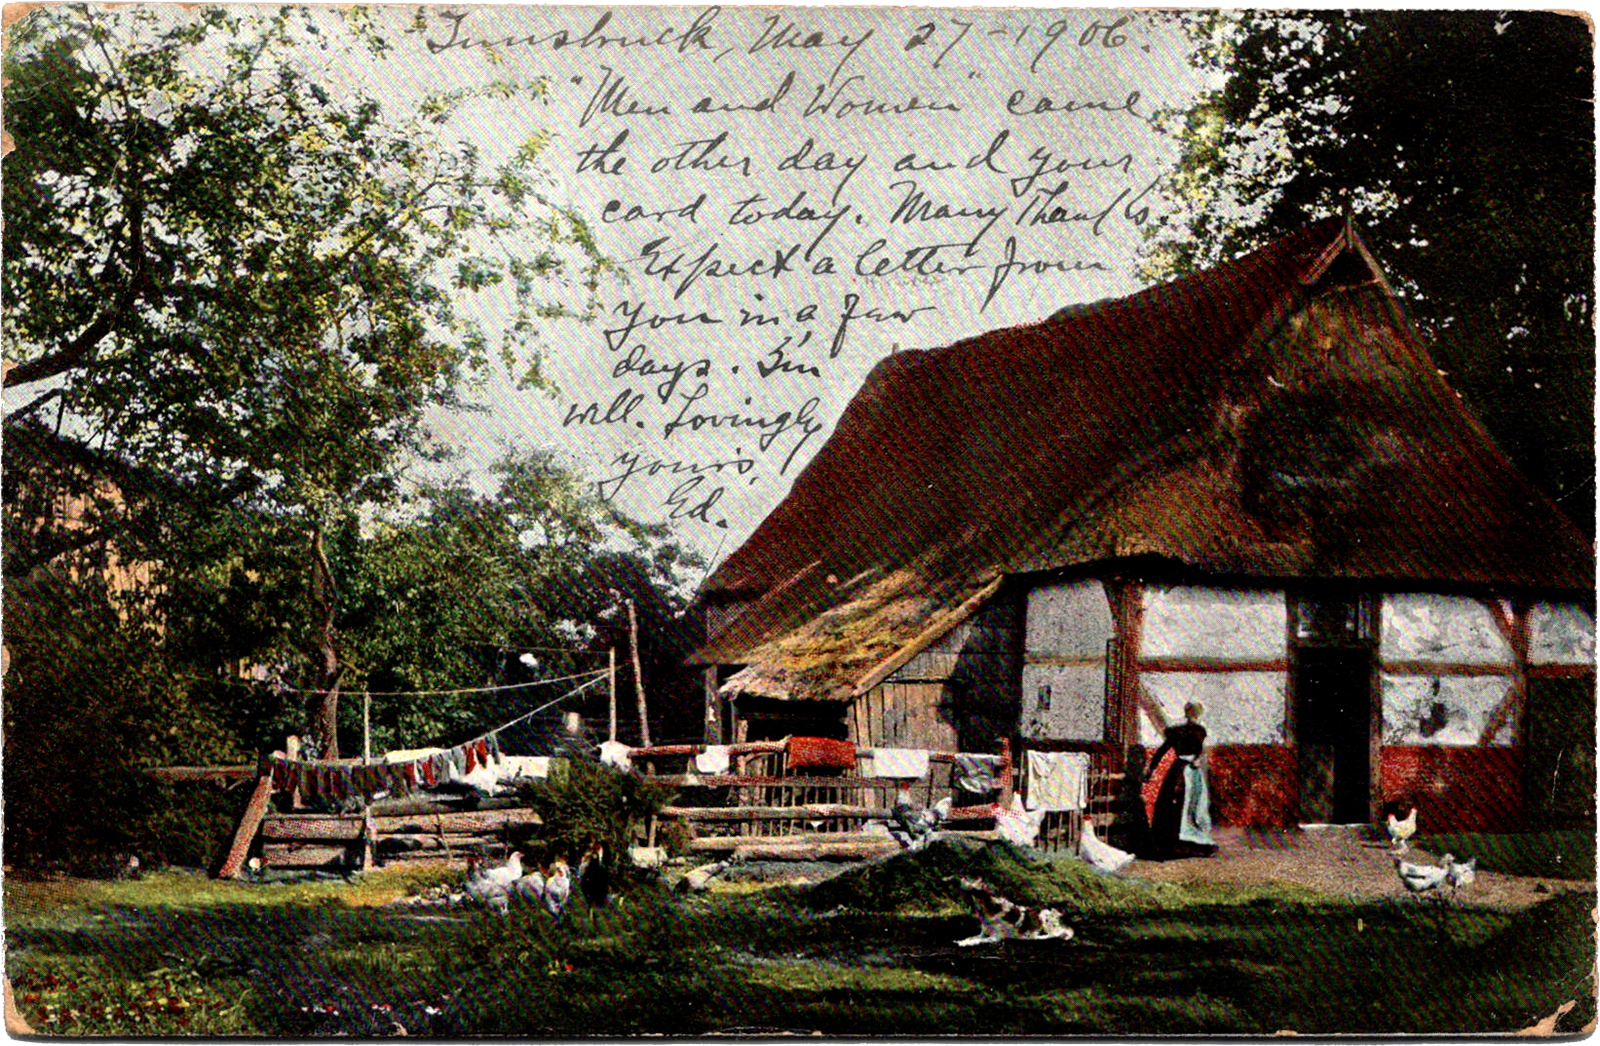 Innsbruck, May 27-1906.
"Men and Women" came
the other day and your
card today. Many Thanks.
Expect a letter from
you in a few
days. I'm
well. Lovingly
yours,
Ed.